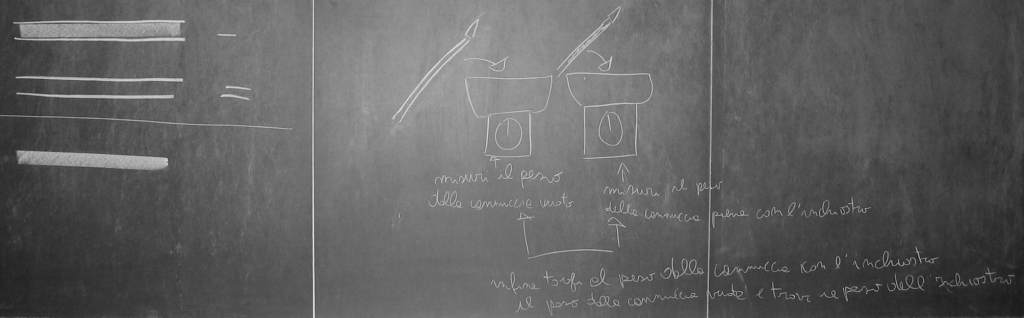 misuri il peso
della cannuccia vuota
misuri il peso
della cannuccia piena con l'inchiostro
infine togli al peso della cannuccia con l'inchiostro
il peso della cannuccia vuota e trovi il peso dell'inchiostro